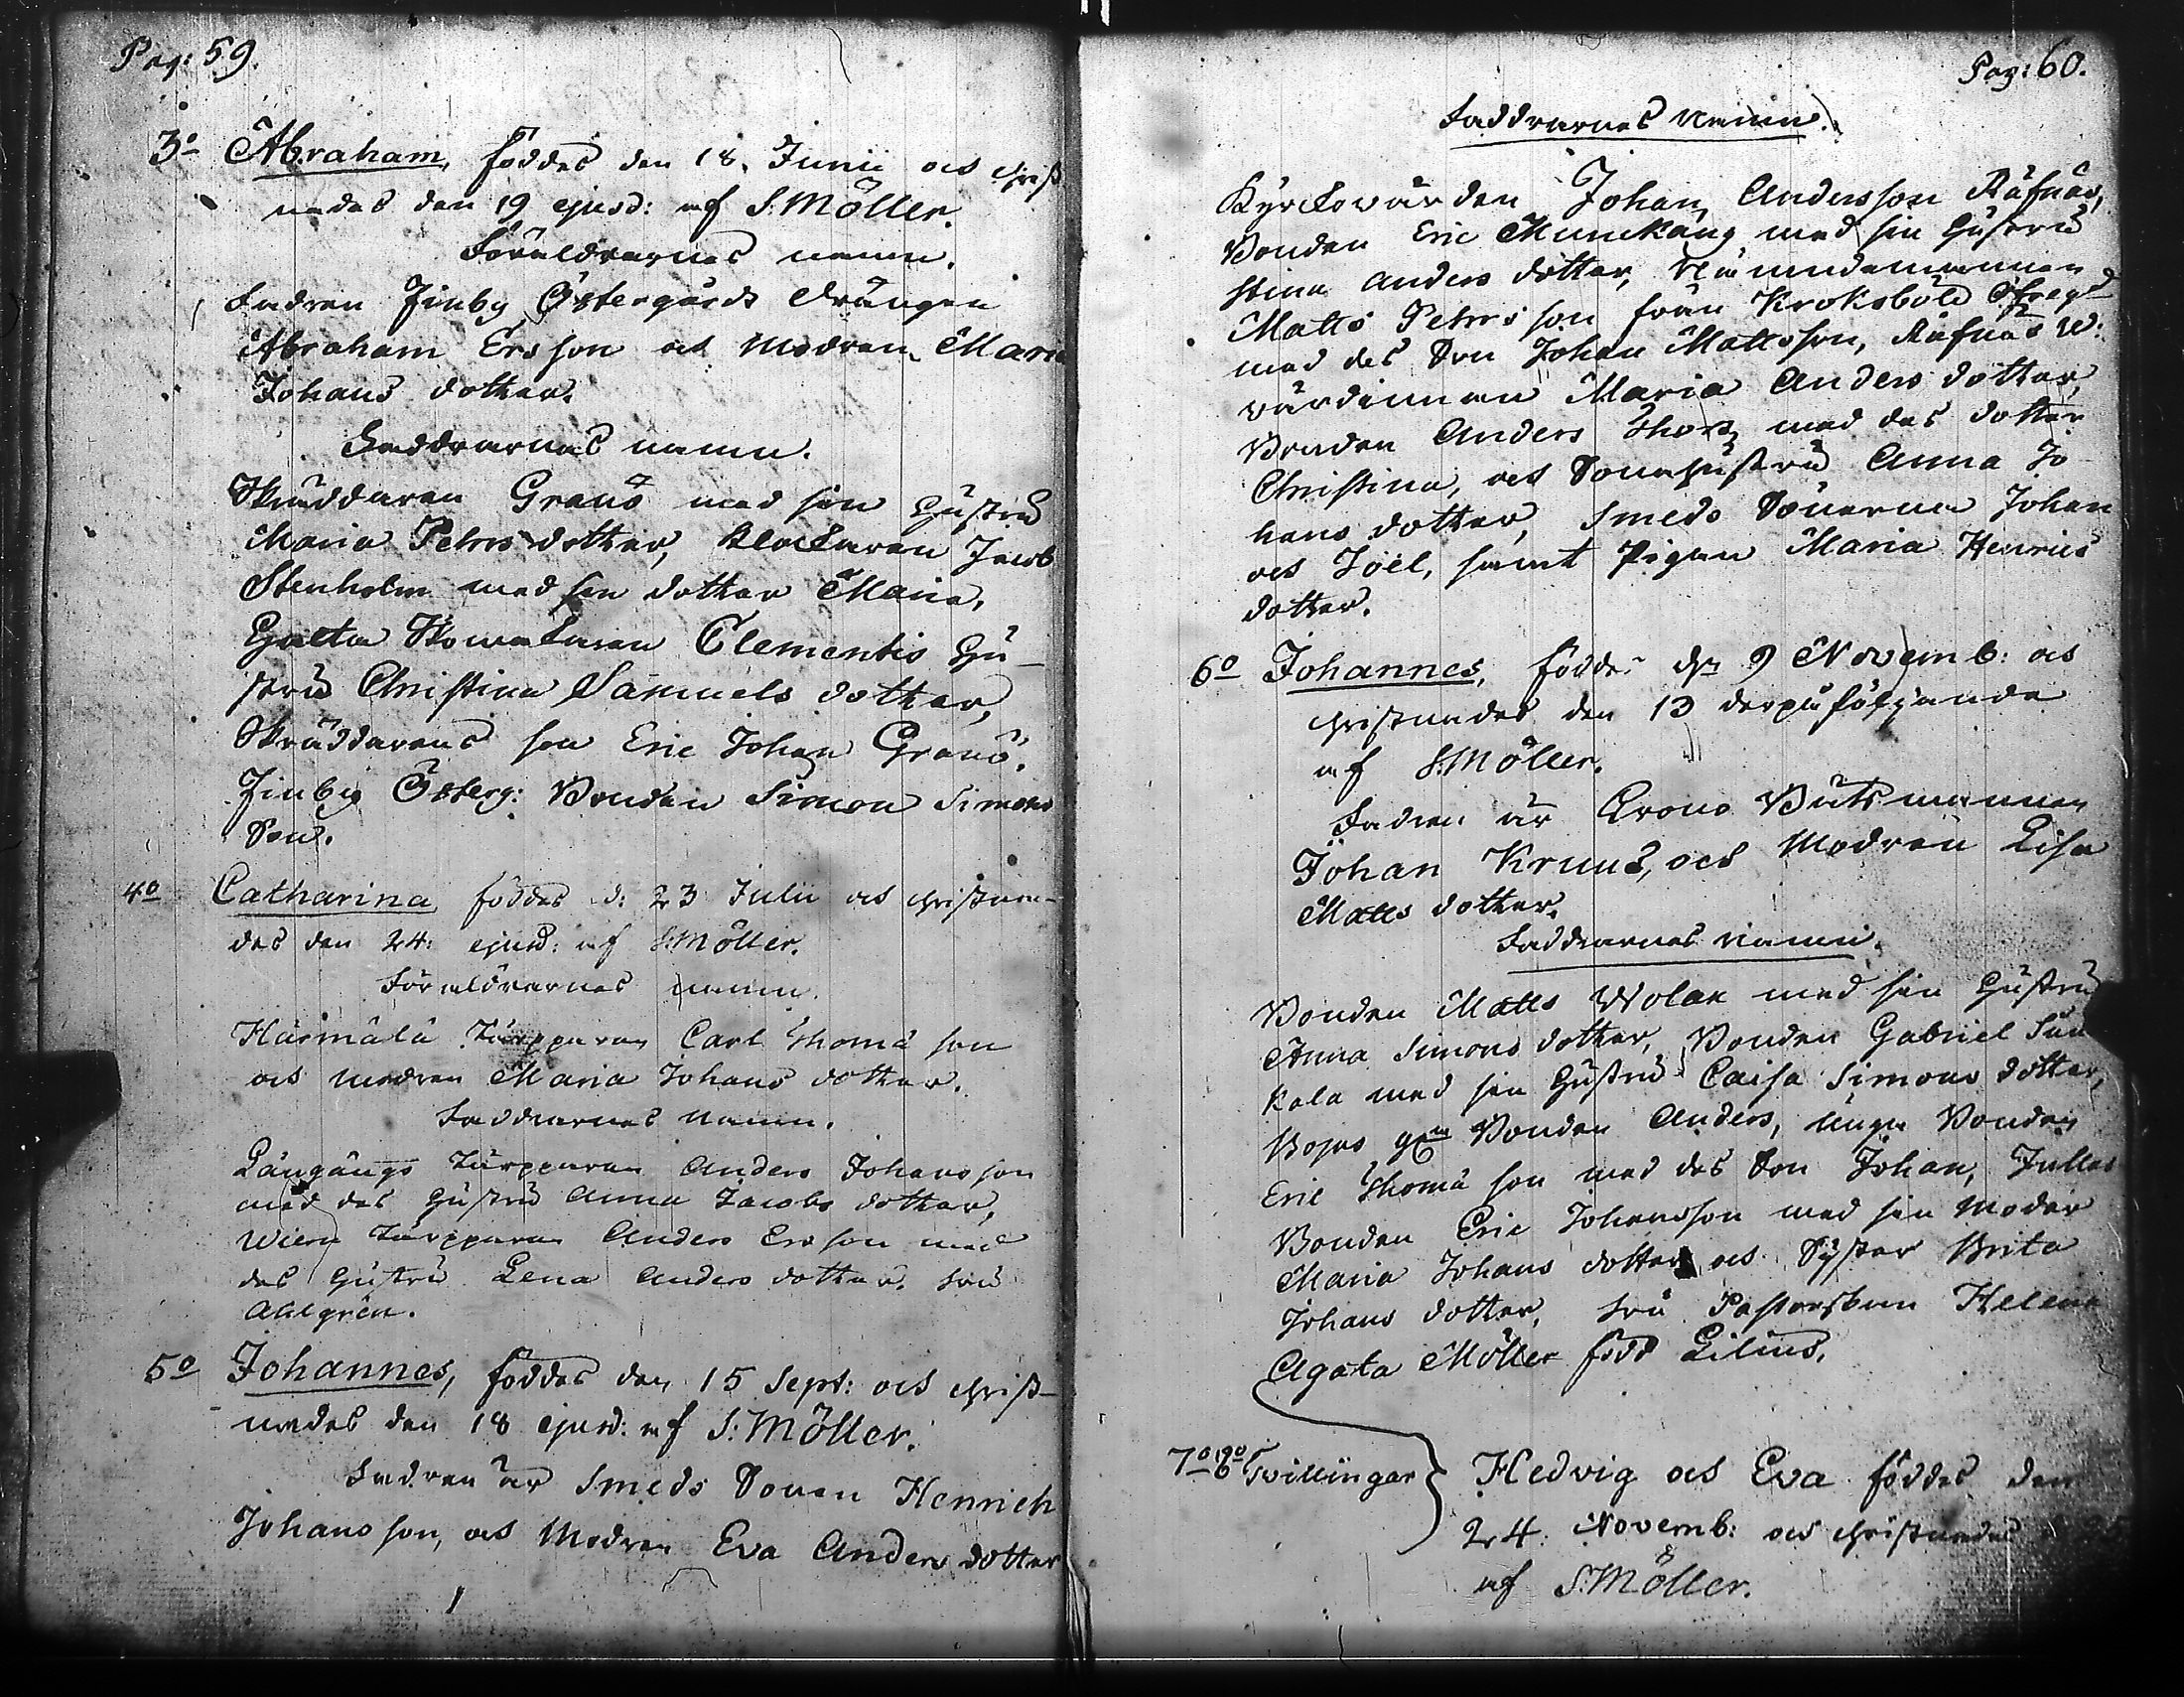 Pag: 59.
3o Abraham, föddes den 18. Junii och christ
nades den 19 ejusd: af S: Möller.
Föräldrarnes namn.
Fadren Finby Östergårds Drängen
Abraham Ersson och Modren Maria
Johans dotter.
Faddrarnas namn.
Skräddaren Granö med sin Hustru
Maria Pehrs dotter, Klockaren Jacob
Stenholm med sin dotter Maria,
Skomakaren Clementis Hu-
stru Christina Samuels dotter,
Skräddarens son Eric Johan Granö.
Finby Österg: Bonden Simon Simons
Son.
4o Catharina föddes d: 23 Julii och christna-
des den 24: ejusd: af S: Möller.
Föräldrarnes namn.
Härmälä Torpparen Carl Thomä son
och modren Maria Johans dotter.
Faddrarnes namn.
Långängs Torpparen Anders Johansson
med des Hustru Anna Jacobs dotter,
Torpparen Anders Ersson med
des Hustru Lena Anders dotter. Fru
Ahlgrén.
5o Johannes, föddes den 15 Sept: och christ-
nades den 18 ejusd: af S: Möller.
Fadren är Smeds Sonen Henrich
Johansson, och Modren Eva Anders dotter
Pag: 60.
Faddrarnes namn.
Kyrckovärden Johan Andersson Räfnäs,
Bonden Eric Munckäng med sin Hustru
Stina Anders dotter, Nämndemannen
Matts Pehrsson från Kroksböle
med des Son Johan Mattsson, Räfnäs W:
värdinnan Maria Anders dotter,
Bonden Anders Thors med des dotter
Christina, och Sonehustru Anna Jo
hans dotter, Smeds Sönerna Johan
och Joël, samt Pigan Maria Henrics
dotter.
6o Johannes, föddes d: 9 Novemb: och
christnades den 13 derpåföljande
af S: Möller.
Fadren är Crono Båtsmannen
Johan Kruus, och Modren Lisa
Matts dotter.
Faddrarnes namn.
Bonden Matts Wolax med sin Hustru
Anna Simons dotter, Bonden Gabriel
kala med sin Hustru Caisa Simons dotter,
Bonden Anders, unga Bonden
Eric Thomä son med des Son Johan,
Bonden Eric Johansson med sin Moder
Maria Johans dotter och Syster Brita
Johans dotter, Fru Pastorskan Helena
Agata Möller född Lilius.
7o & 8o Tvillingar } Hedvig och Eva föddes den
24. Novemb: och christnades
af S: Möller.